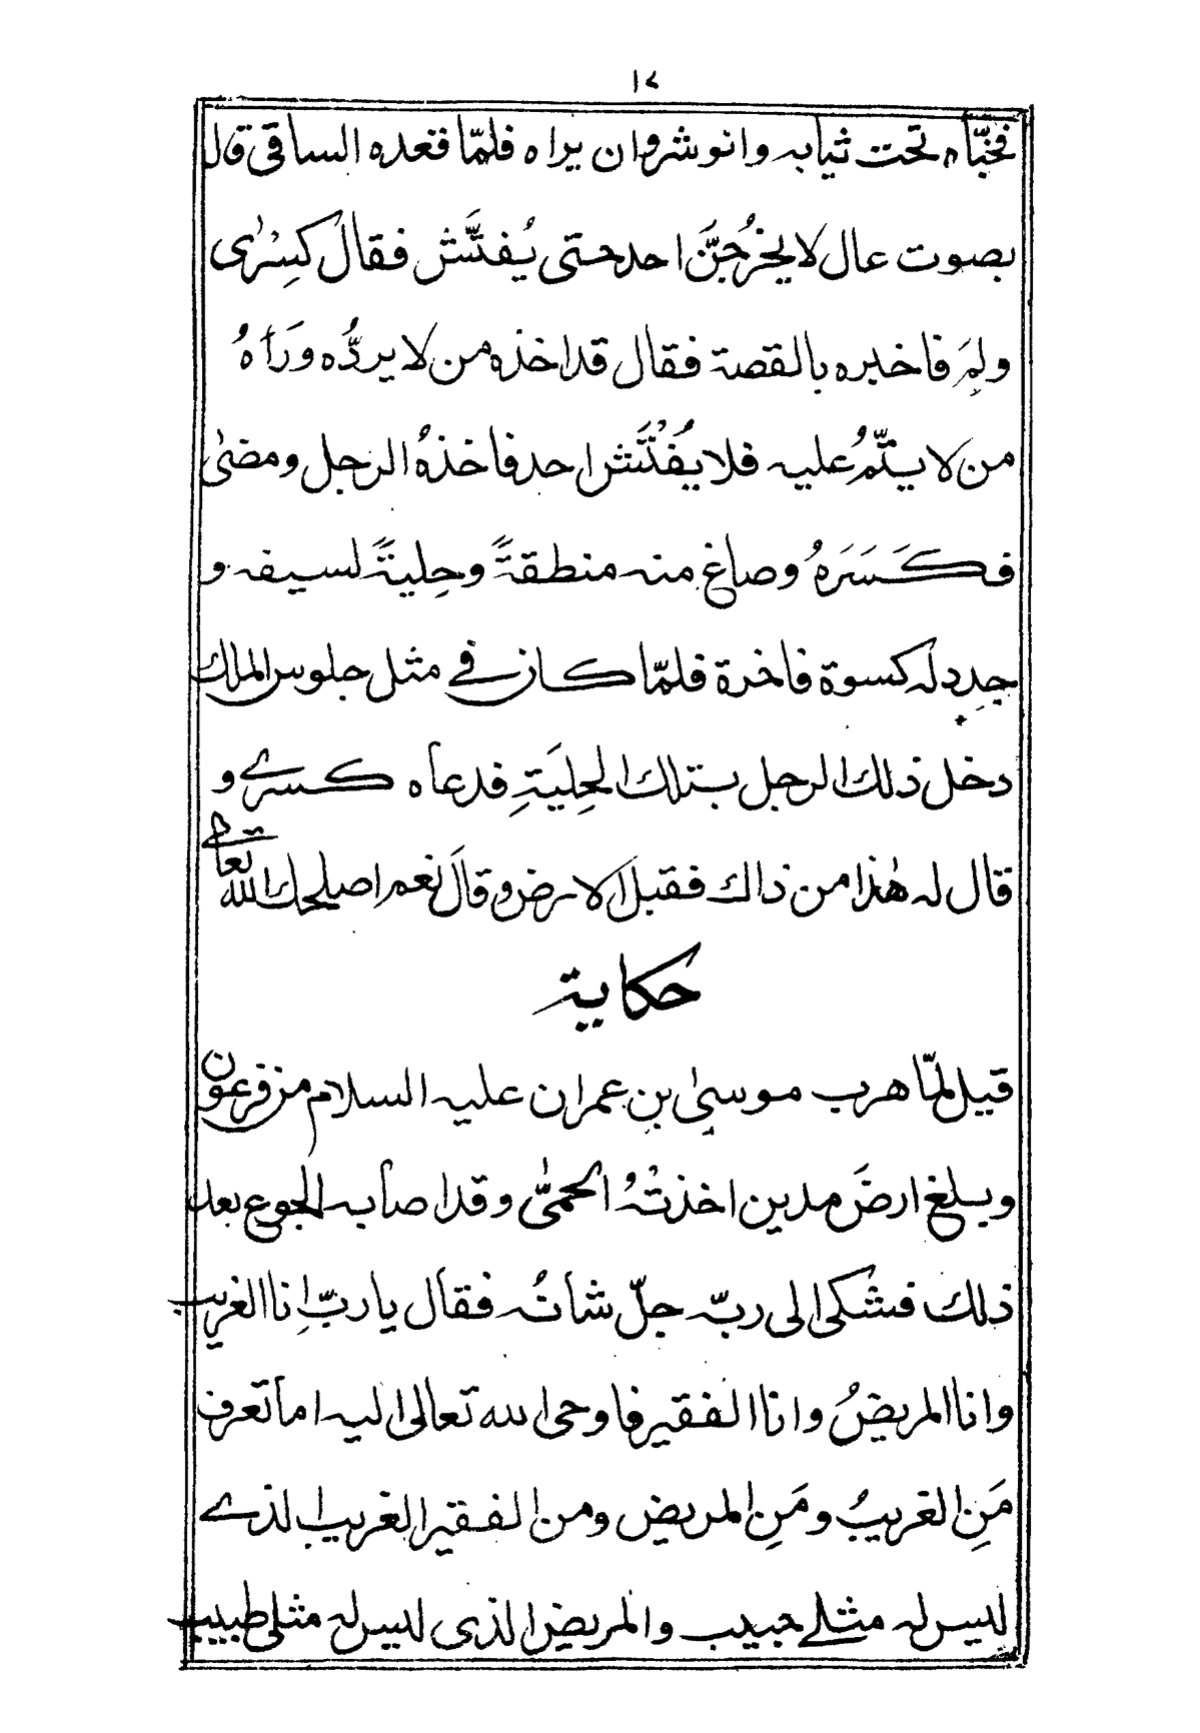 ١٧
فخبّاه تحت ثيابه وانوشروان يراه فلمّا فقده الساقي قال
بصوت عال لا يخرُجَنَّ احد حتى يُفتَّش فقال كِسْرٰى
ولِمَ فاخبره بالقصة فقال قد اخذه من لا يردُّه ورَاٰهُ
من لا ينِمُّ عليه فلا يُفْتَش احد فاخذهُ الرجل ومضىٰ
فكَسَرَهُ وصاغ منه منطقةً وحِليةً لسيفه و
جدد له كسوة فاخرة فلمّا كان في مثل جلوس الملك
دخل ذلك الرجل بتلك الحِليَةِ فدعاه كسرے و
قال له هٰذا من ذاك فقبل الارض وقالَ نعم اصلحك الله تعالے
حكاية
قيل لمّا هرب موسىٰ بن عمران عليه السلام من فرعون
وبلغ ارضَ مدين اخذتْهُ الحمىّٰ وقد اصابه الجوع بعد
ذلك فشكى الى ربّه جلّ شانُه فقال يا ربِّ انا الغريب
وانا المريضُ وانا الفقير فاوحى الله تعالى اليه اما تعرف
مَنِ الغريبُ ومَنِ المريض ومن الفقير الغريب الذے
ليس له مثلے حبيب والمريض الذى ليس له مثلى طبيب